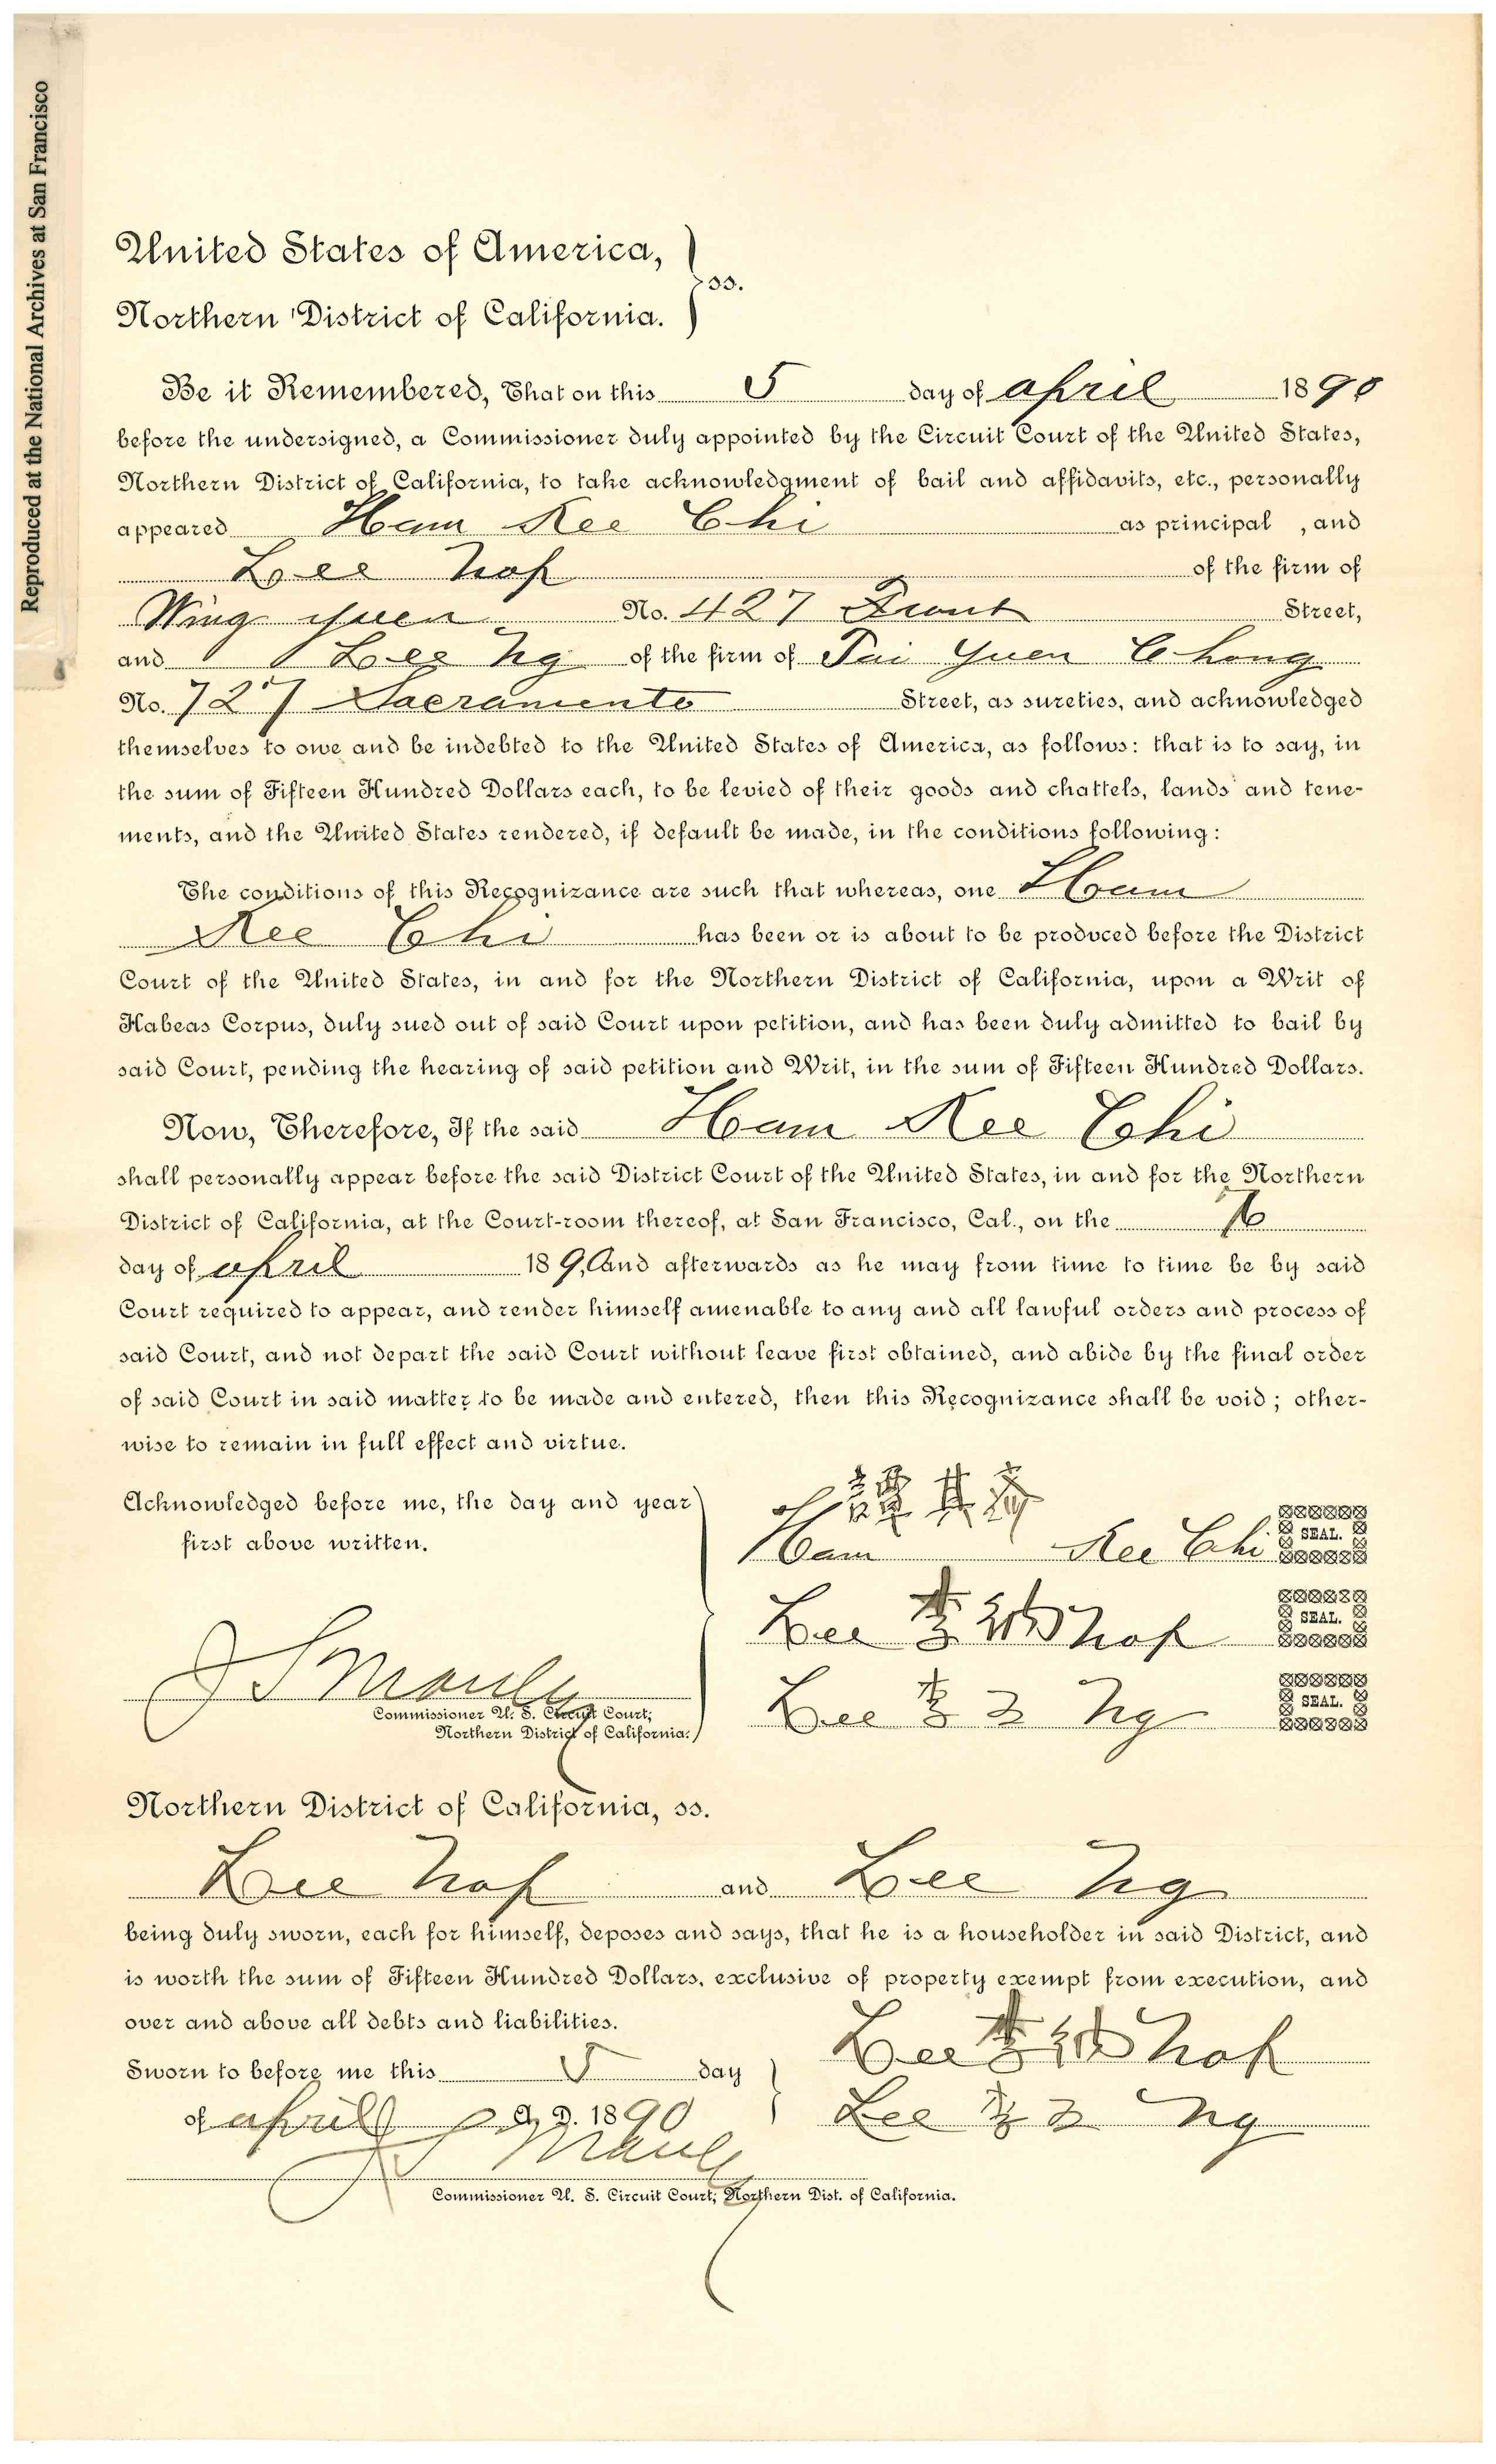 Reproduced at the National Archives at San Francisco
United States of America,
Northern District of California. } ss.
Be it Remembered, That on this 5 day of April 1890
before the undersigned, a Commissioner duly appointed by the Circuit Court of the United States,
Northern District of California, to take acknowledgment of bail and affidavits, etc., personally
appeared Ham Kee Chi as principal , and
Lee Nop of the firm of
Wing Yuen No. 427 Front Street,
and Lee Ng of the firm of Tai Yuen Chong
No. 727 Sacramento Street, as sureties, and acknowledged
themselves to owe and be indebted to the United States of America, as follows: that is to say, in
the sum of Fifteen Hundred Dollars each, to be levied of their goods and chattels, lands and tene-
ments, and the United States rendered, if default be made, in the conditions following:
The conditions of this Recognizance are such that whereas, one Ham
Kee Chi has been or is about to be produced before the District
Court of the United States, in and for the Northern District of California, upon a Writ of
Habeas Corpus, duly sued out of said Court upon petition, and has been duly admitted to bail by
said Court, pending the hearing of said petition and Writ, in the sum of Fifteen Hundred Dollars.
Now, Therefore, If the said Ham Kee Chi
shall personally appear before the said District Court of the United States, in and for the Northern
District of California, at the Court-room thereof, at San Francisco, Cal., on the
day of April 189, And afterwards as he may from time to time be by said
Court required to appear, and render himself amenable to any and all lawful orders and process of
said Court, and not depart the said Court without leave first obtained, and abide by the final order
of said Court in said matter to be made and entered, then this Recognizance shall be void; other-
wise to remain in full effect and virtue.
Acknowledged before me, the day and year
first above written.
譚其
Ham Kee Chi SEAL.
Lee 李 Nop SEAL.
Lee 李 Ng SEAL.
Commissioner U. S. Circuit Court,
Northern District of California.
Northern District of California, ss.
Lee Nop and Lee Ng
being duly sworn, each for himself, deposes and says, that he is a householder in said District, and
is worth the sum of Fifteen Hundred Dollars, exclusive of property exempt from execution, and
over and above all debts and liabilities.
Lee 李 Nop
Sworn to before me this 5 day
of April A. D. 1890
Lee 李 Ng
Commissioner U. S. Circuit Court, Northern Dist. of California.